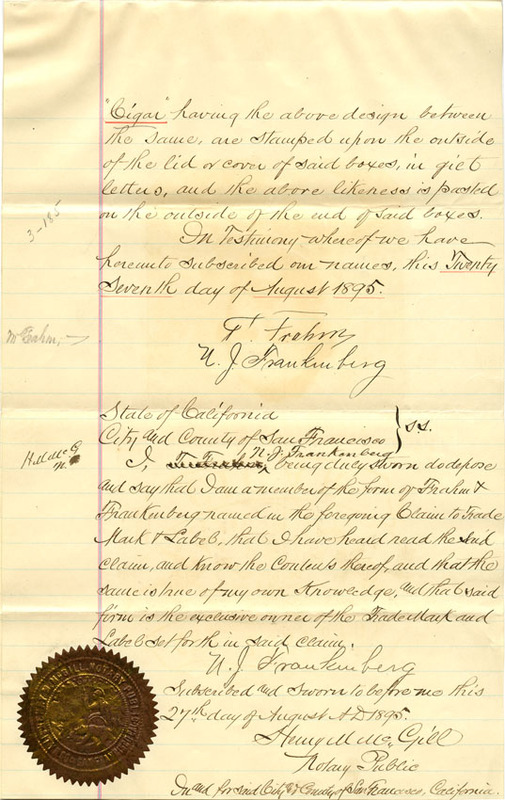 "Cigar" having the above design between
the same, are stamped upon the outside
of the lid or cover of said boxes, in gilt
letters, and the above likeness is pasted
on the outside of the end of said boxes.
3-185
In Testimony whereof we have
hereunto subscribed our names, this Twenty
Seventh day of August 1895.
T. Frahm
N. J. Frankenberg
State of California
City and County of San Francisco } ss.
I, N. J. Frankenberg, being duly sworn do depose
and say that I am a member of the firm of Frahm &
Frankenberg named in the foregoing Claim to Trade
Mark & Labels, that I have heard read the said
claim, and know the contents thereof, and that the
same is true of my own knowledge, and that said
firm is the exclusive owner of the Trade Mark and
Labels set forth in said claim.
N. J. Frankenberg
Subscribed and sworn to before me this
27th day of August A.D. 1895.
Henry M McGill
Notary Public
In and for said City & County of San Francisco, California.